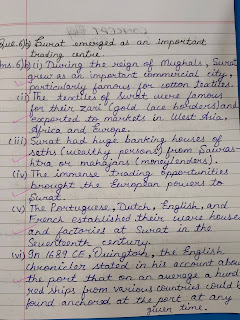 Que.6)b) Surat emerged as an important
trading centre.
Ans.6)b)(i) During the reign of Mughals, Surat
grew as an important commercial city,
particularly famous for cotton textiles.
(ii) The textiles of Surat were famous
for their zari (gold lace borders) and
exported to markets in West Asia,
Africa and Europe.
(iii) Surat had huge banking houses of
seths (wealthy persons) from Sauras-
htra or mahajans (moneylenders).
(iv) The immense trading opportunities
brought the European powers to
Surat.
(v) The Portuguese, Dutch, English, and
French established their ware houses
and factories at Surat in the
Seventeenth century.
(vi) In 1689 CE, Ovington, the English
Chronicler stated in his account about
the port that on an average a hund
red ships from various countries could b
found anchored at the port at any
given time.